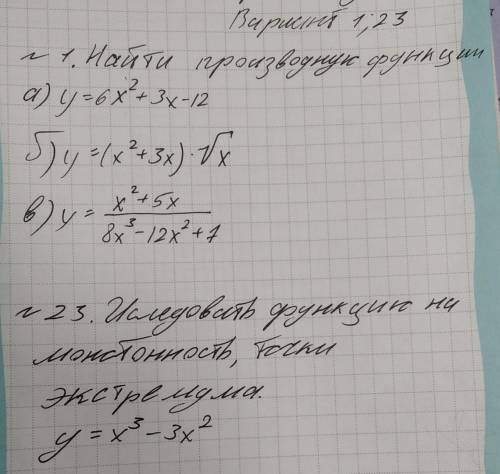 Вариант 1; 23
№ 1. Найти производную функции
а) y = 6x² + 3x - 12
б) y = (x² + 3x) · √x
в) y = (x² + 5x) / (8x³ - 12x² + 7)
№ 23. Иследовать функцию на
монотонность, точки
экстремума.
y = x³ - 3x²